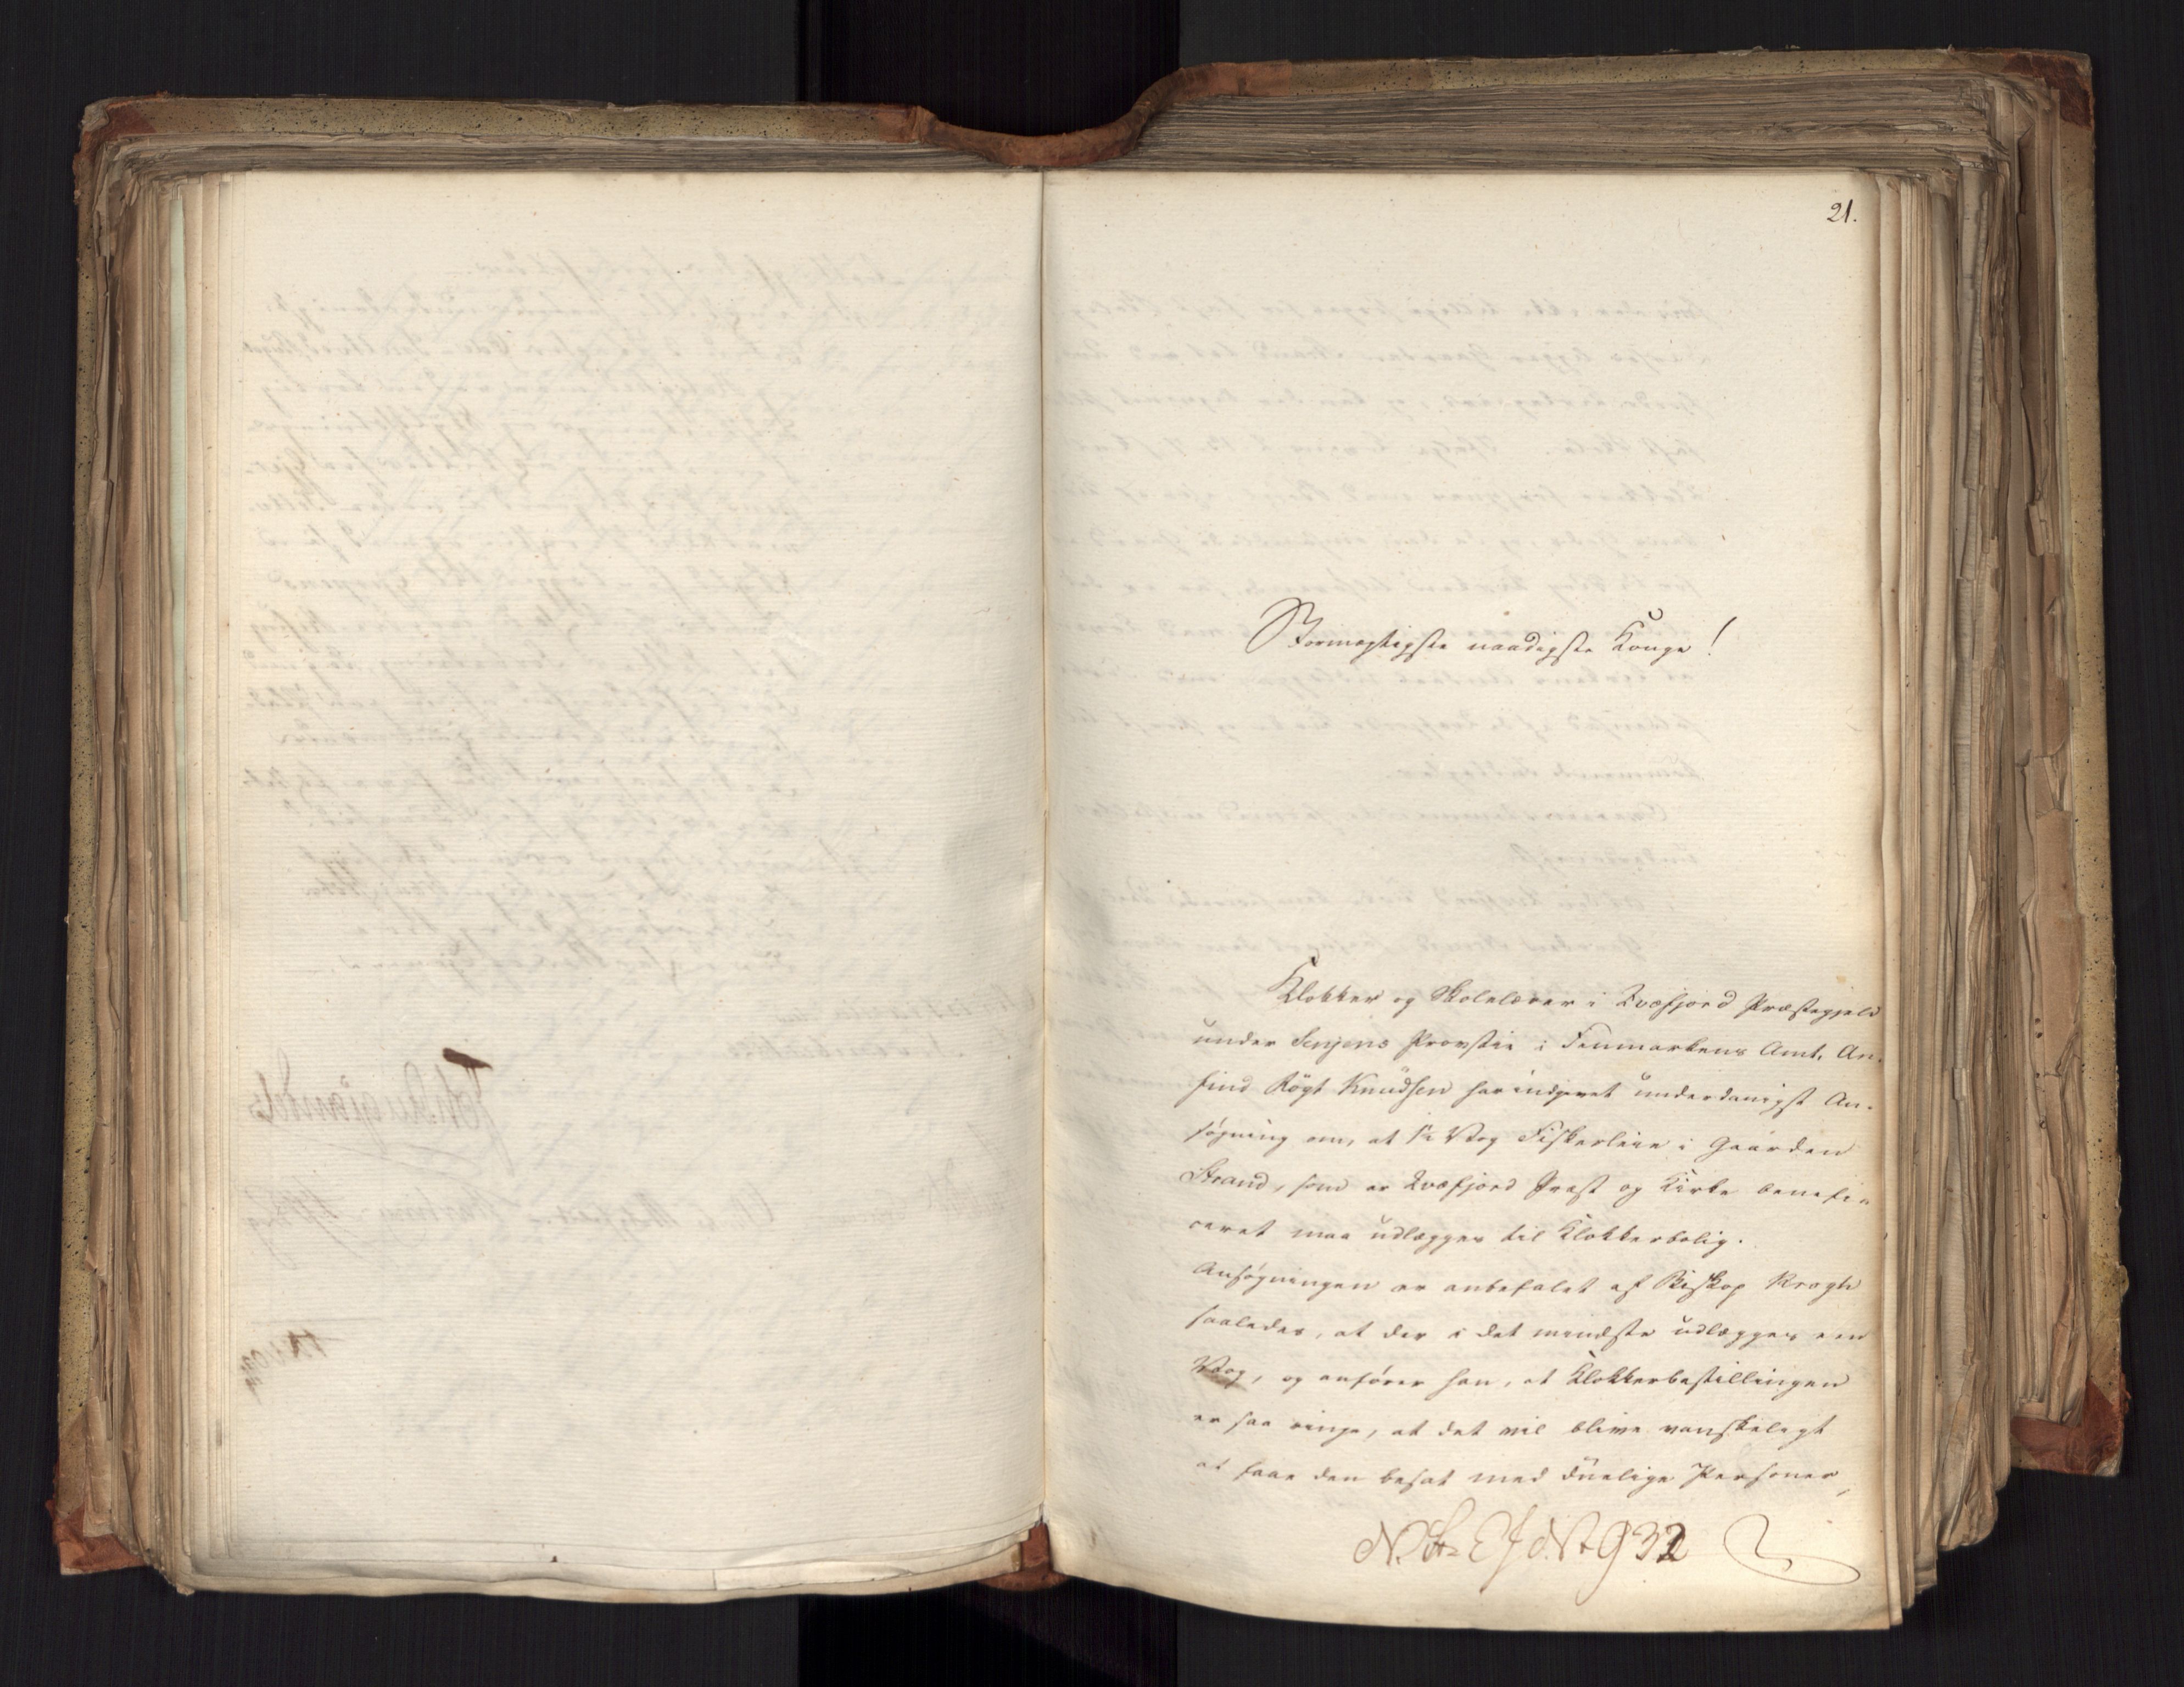 21.
Stormægtigste naadigste Konge!
Klokker og Skolelærer i Qvæfjord Præstegjeld
under Senjens Provstie i Finmarkens Amt, An-
find Røgt Knudsen har indgivet underdanigst An-
søgning om, at 1½ Vog Fiskerleie i Gaarden
Strand, som er Qvæfjord Præst og Kirke benefi-
ceret maa udlægges til Klokkerbolig.
Ansøgningen er anbefalet af Biskop Krogh
saaledes, at der i det mindste udlægges een
Vog, og anfører han, at Klokkerbestillingen
er saa ringe, at det vil blive vanskeligt
at faae den besat med duelige Personer,
932